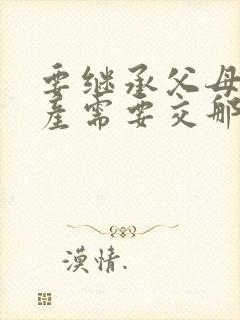 要继承父母
产需要交那
漠情.